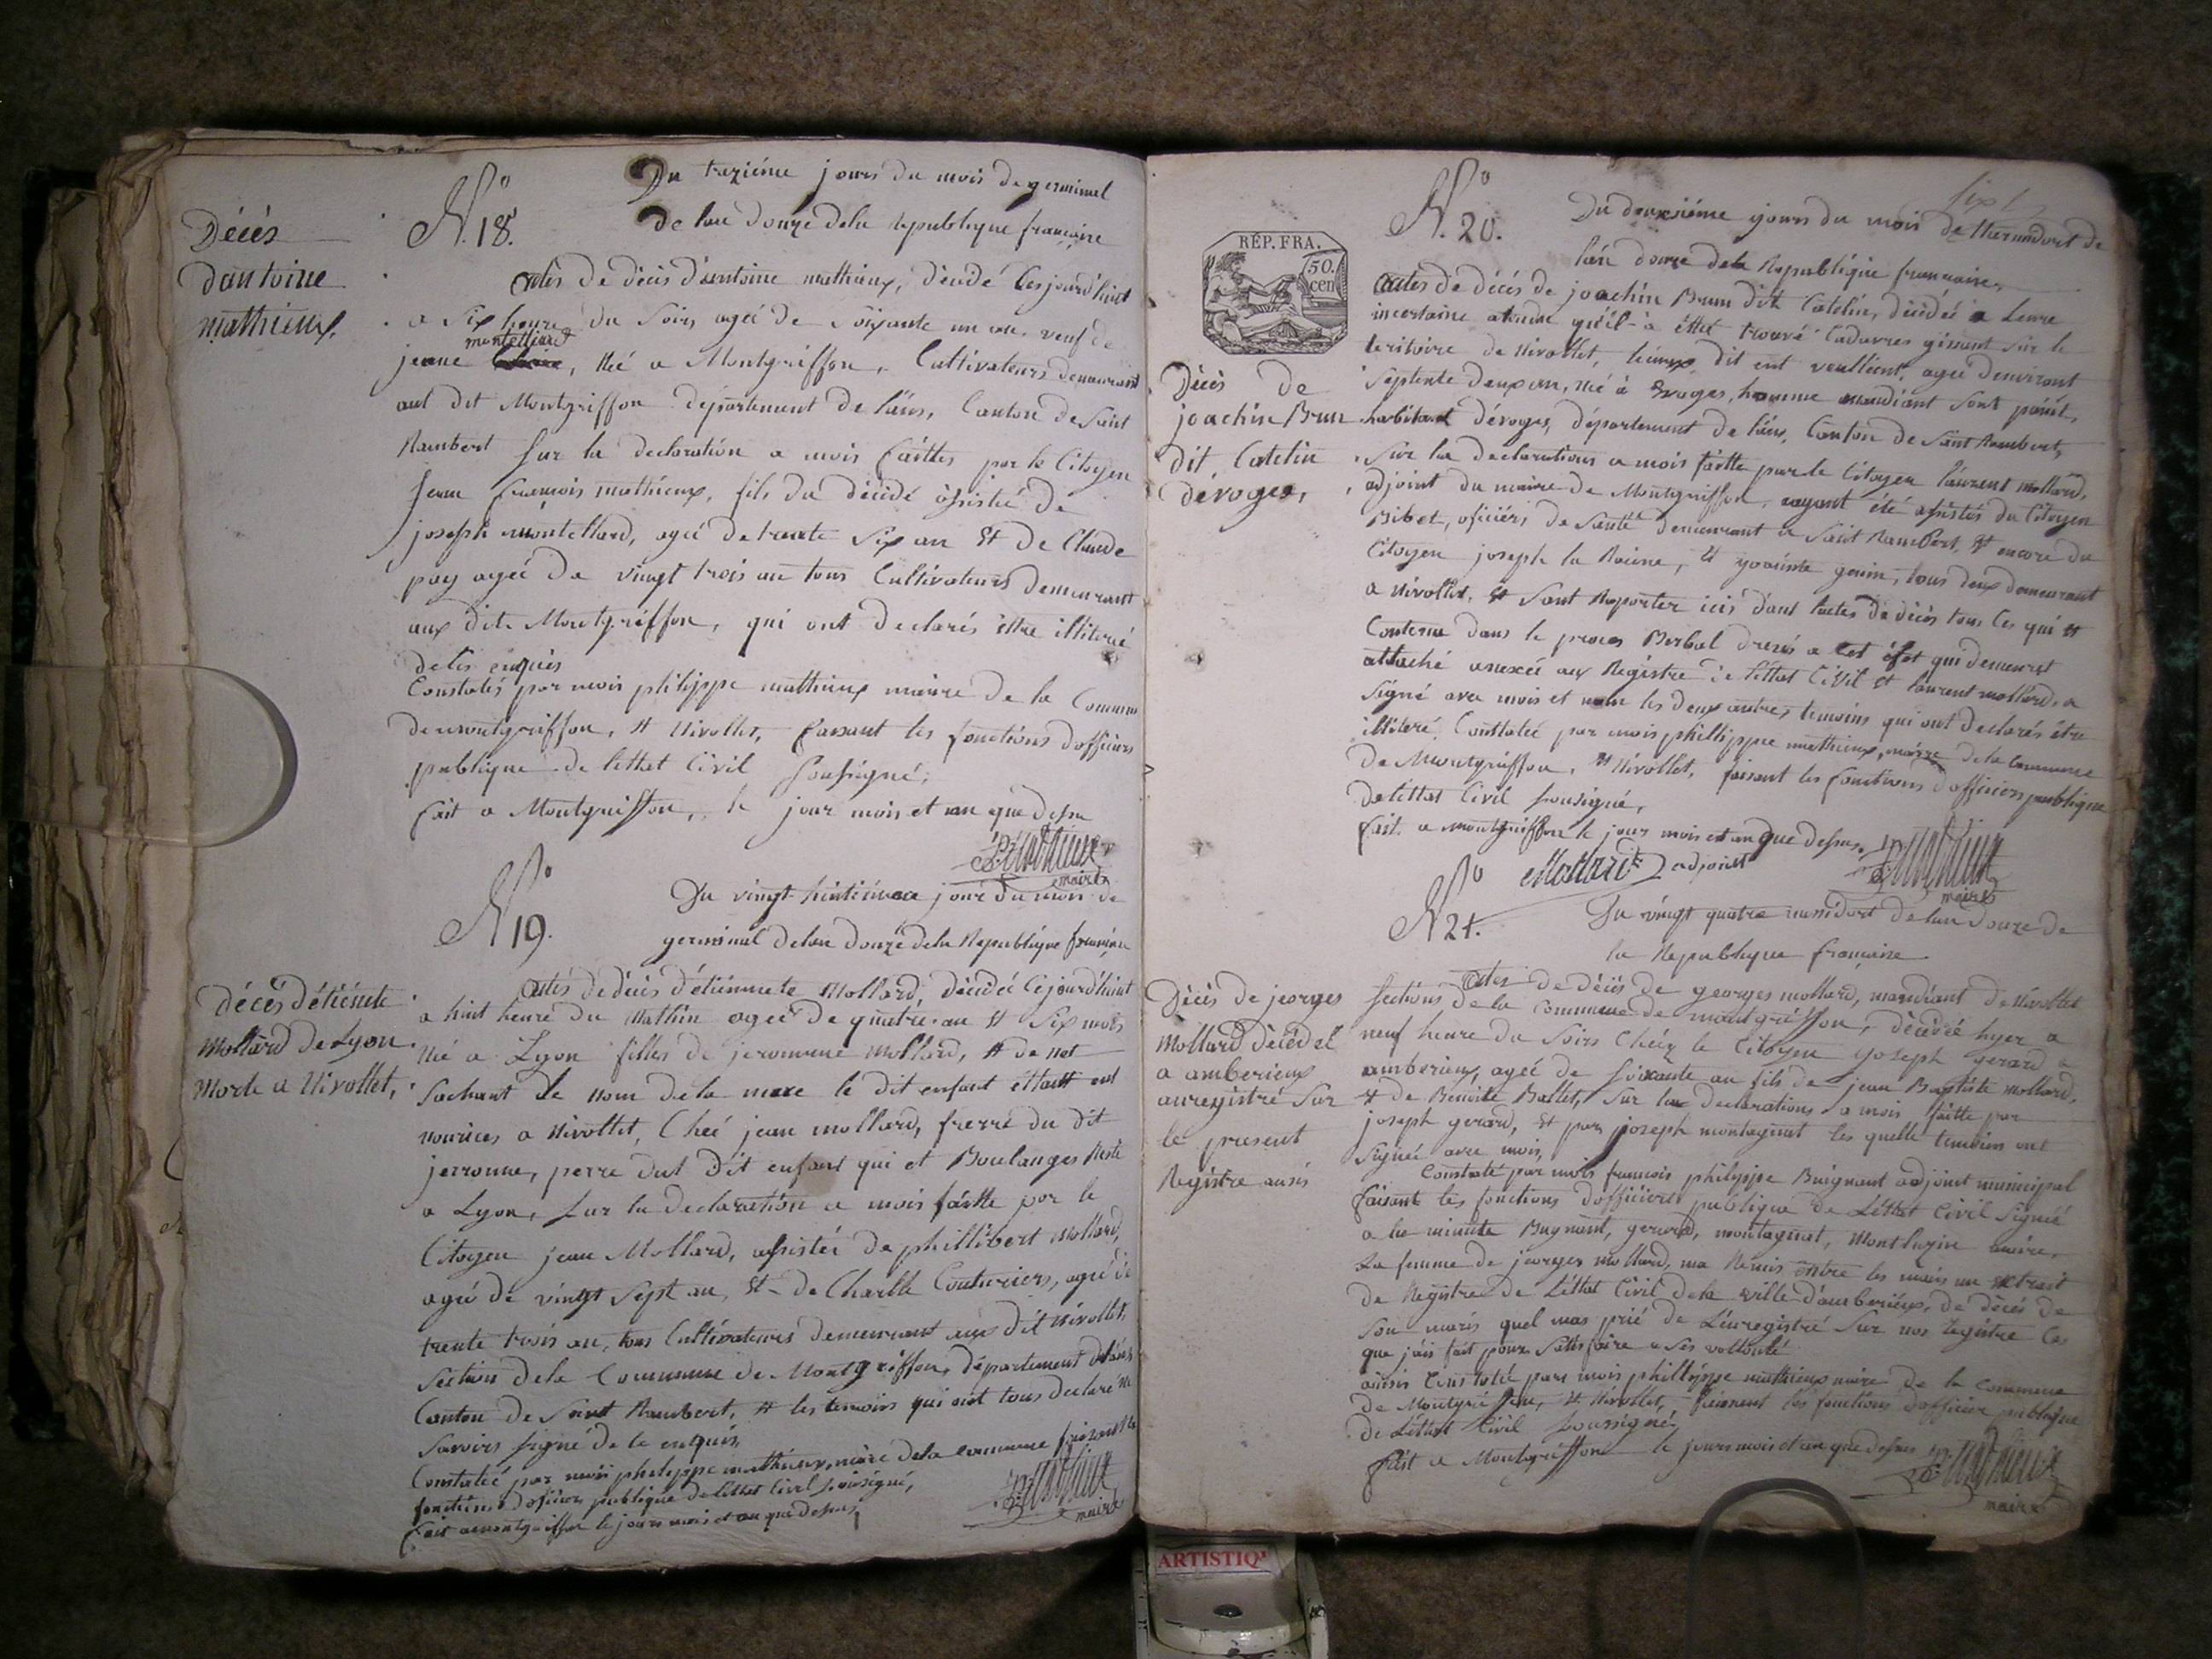 Décés
dantoine
mathieux.
N.º 18.
Du treziéme jours du mois de germinal
de lan douze dela Republique francaise
actes de décés d'antoine mathieux, décidé Cejourd'huit
a six heure du soirs agée de soixante un an veuf de
montelliard
jeanne , Née a Montgriffon, Cultivateurs demeurant
aut dit Montgriffon département de l'ains, Canton de Saint
Rambert sur la declaration a mois faittes par le Citoyen
jean francois mathieux, fils du décidé assisté de
joseph montellard, agée de trente six an Et de Claude
pay agée de vingt trois an tous Cultivateurs demeurant
aux dit Montgriffon, qui ont declarés être illiteré
de les enquis
Constatés par mois philippe mathieux maire de la Commune
de montgriffon, et Nivollet, faisant les fonctions d'officiers
publique de lettat Civil soussigné,
fait a Montgriffon, le jour mois et an que dessu
PMathieux
maire
N.º 19.
Du vingt huitiéme jour du mois de
germinal delan douze dela Republique francaise
décés détiénnete
Mollard de Lyon
Morte a Nivollet,
actés de décés d'étiénnete Mollard, décidée Cejourd'huit
a huit heure du Mathin agée de quatre an et six mois
Née a Lyon filles de jeromme Mollard, et de not
sachant le nom dela mere le dit enfant éttait ent
nourices a Nivollet, Cheé jean mollard, frerre du dit
jerromme, perre dut dit enfant qui et Boulanger Resté
a Lyon, sur la declaration a mois faitte par le
Citoyen jean Mollard, assistée de phillibert Mollard,
agée de vingt sept an, Et de Charlle Couturiers, agée de
trente trois an, tous Cultivateurs demeurant aux dit Nivollet,
Section dela Commune de Montgriffon, département de l'ains
Canton de Saint Rambert, et les temoins qui ont tous declaré ne
Savoirs signé de le enquis
Constatée par mois philippe mathieux, maire dela commune faisant les
fonctions d'oficiers publique de lettat Civil soussigné,
fait a montgriffon le jours mois et an que dessus,
PMathieux
maire
RÉP. FRA.
50.
cen
N.º 20.
Du deuxiéme jours du mois de thermidort de
l'an douze dela Republique francaise,
Décés de
joachin Brun
dit Catelin
dévoges,
actes de décés de joachin Brun dit Catelin, décidés a Leure
incertaine atendu qu'il à éttet trouvé Cadavres gissent sur le
teritoire de Nivollet, lieux dit ent veullient, agée denviront
septente deux an, Né à Evoges, homme mandiant sont païnt,
habitant dévoges, département de l'ains, Canton de Saint Rambert,
Sur la declarations a mois faitte par le Citoyen laurent mollard,
adjoint du maire de Montgriffon, ayant été assistés du Citoyen
Bibet, oficiérs de santé demeurant a Saint Rambert, Et encore du
Citoyen joseph la Raine, et genin, tous deux demeurant
a Nivollet, Et sont Raporter icis dans lactes de décés tous ces qui et
Contenu dans le proces Verbal dressés a cet éfet qui demeuret
attaché anexéé aux Registre de léttat Civil Et laurent mollard, a
signé avec mois et non les deux autres temoins qui ont declarés être
illiteré, Constatée par mois phillippe mathieux, maire dela Commune
de Montgriffon, Et Nivollet, faisant les fonctions d'officiers publique
delettat Civil sousigné,
fait a montgriffon le jour mois et an que dessus.
Mollard adjoint
PMathieux
maire
N.º 21.
Du vingt quatre messidort delan douze de
la Republique francaise
Décés de jeorges
Mollard décédet
a amberieux
anregistré sur
le present
Registre ausis
actes de décés de georges mollard, mandiant de Nivollet
sections de la Commune de montgriffon, décédéé hyer a
neuf heure du soirs Cheéz le Citoyen joseph gerard a
amberieux, agée de soixante an fils de jean Baptiste mollard,
et de Benoite Ballet, sur la declarations a mois faitte par
joseph gerard, Et par joseph montagnat les quelle temoins ont
signée avec mois,
Constaté par mois francois philippe Buignant adjoint municipal
faisant les fonctions d'officiers publique de Léttat Civil signéé
a la minute Bugnant, gerard, montagnat, Montluzin maire.
La femme de jeorges mollard, ma Remis entre les mains un extrait
de Registre de léttat Civil dela ville d'amberieux, dé décés de
son maris quel mas prié de Lénregistré sur nos Registre Ces
que j'ais fait pour sattisfaire a ses vollonté
ainsis Constaté pars mois phillippe mathieux maire de la commune
de Montgriffon, et Nivollet, faisient les fonctions d'officier publique
de Léttat Civil soussigné,
fait a Montgriffon le jours mois et an que dessus
PMathieux
maire
ARTISTIQ